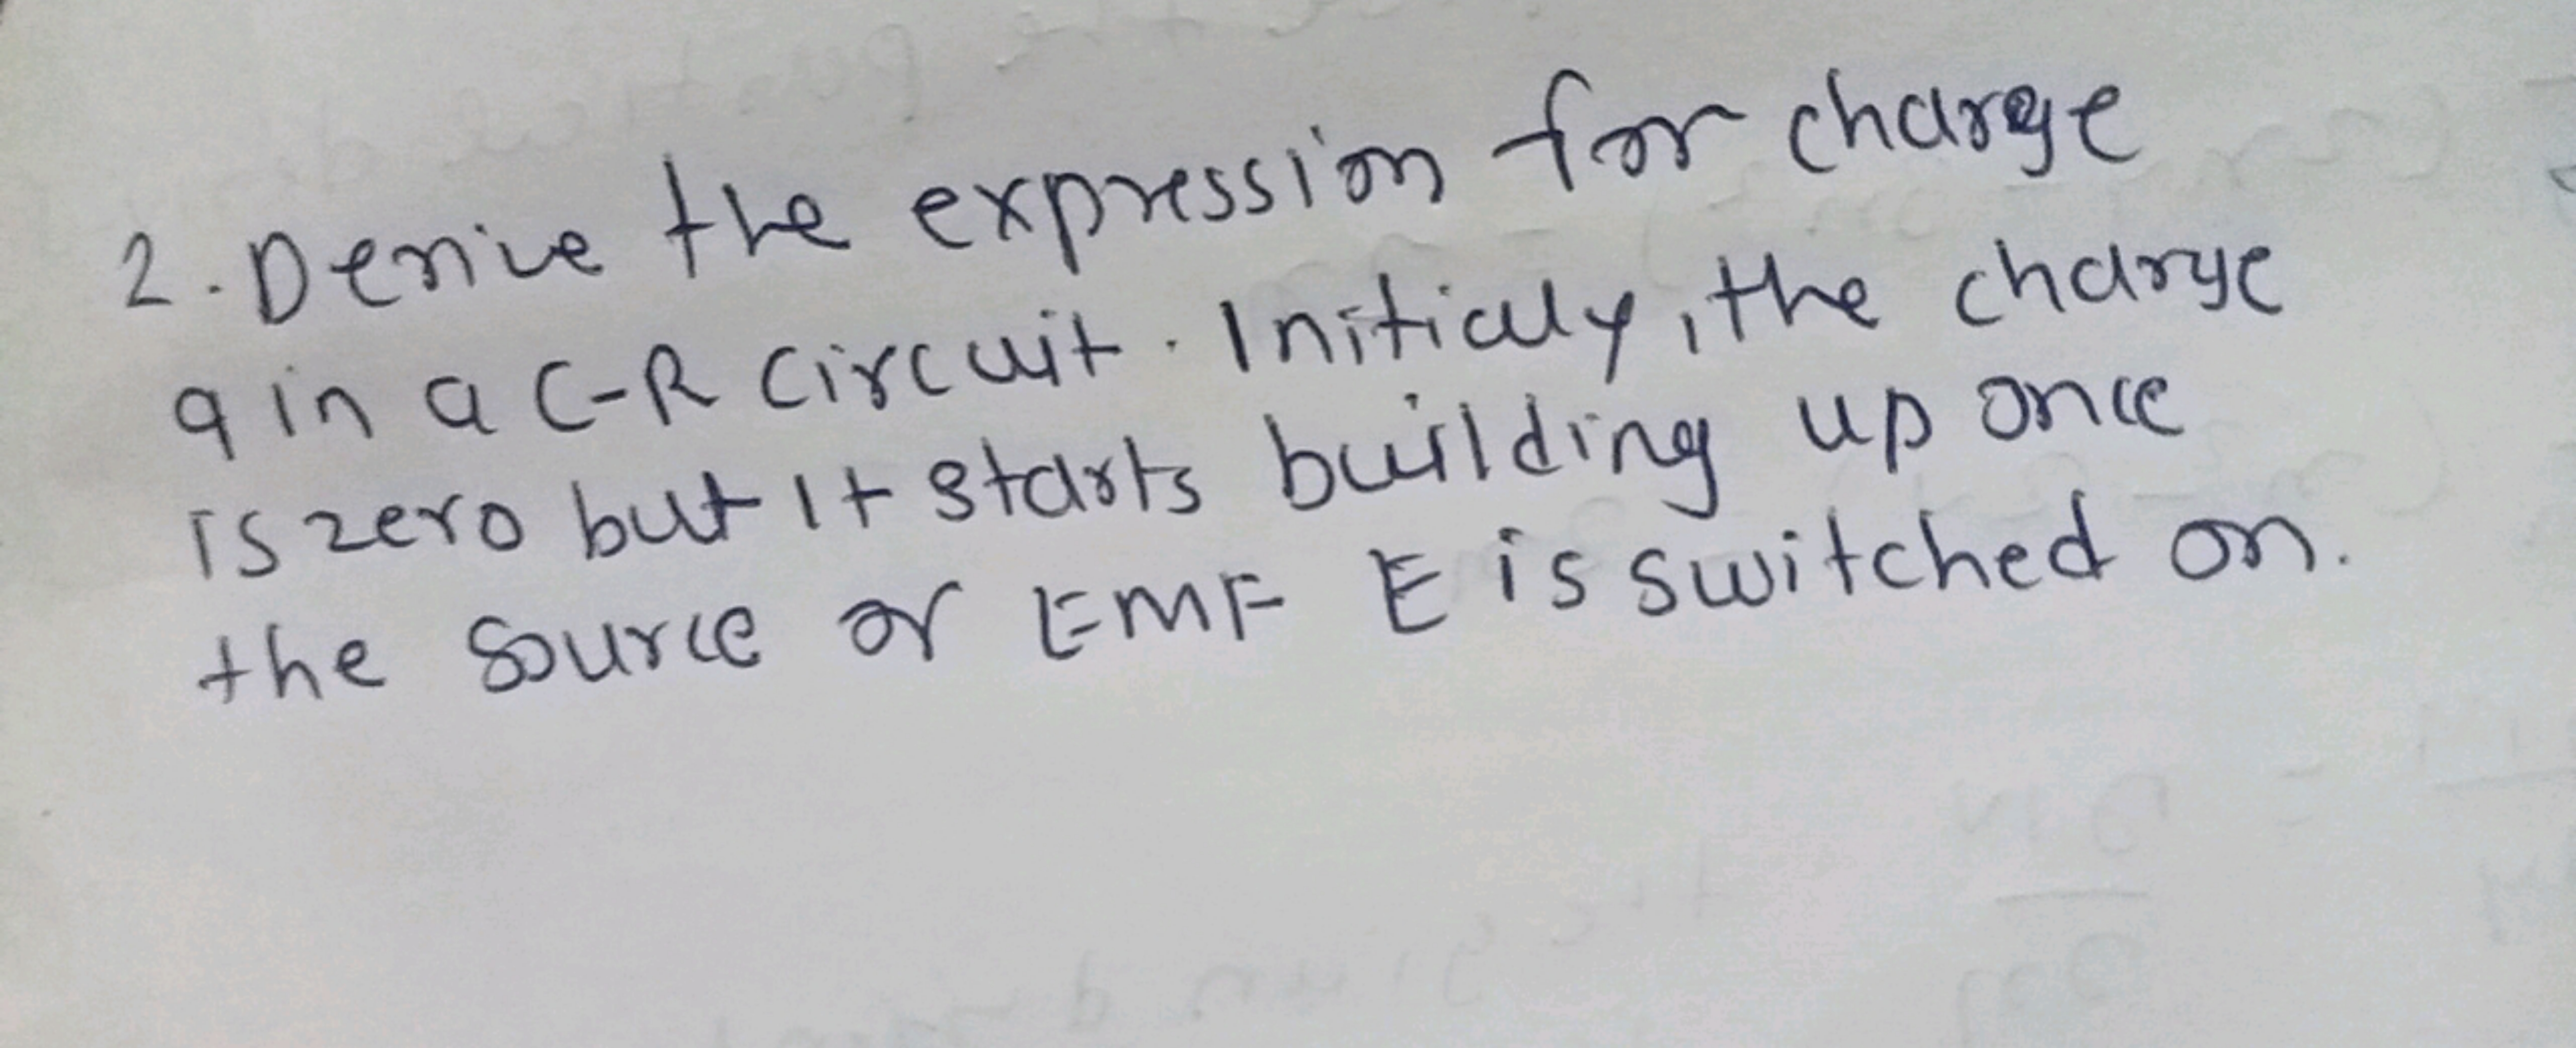 2. Derive the expression for charge
q in a C-R circuit. Initially, the charge
is zero but it starts building up once
the source of EMF E is switched on.